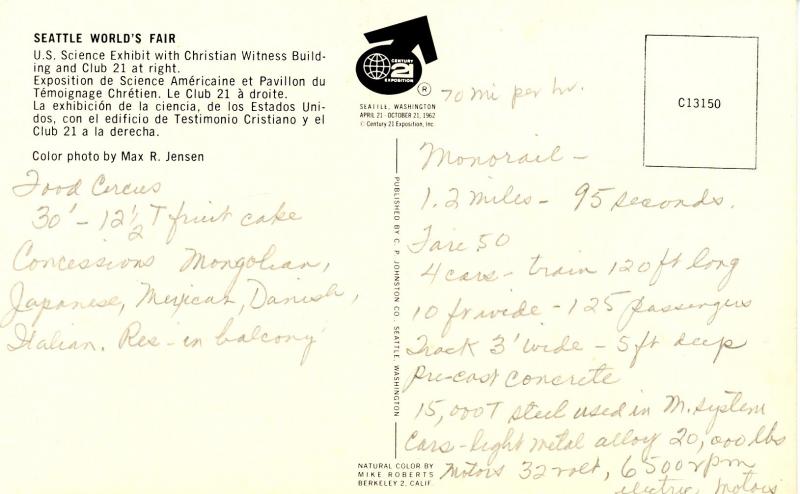 SEATTLE WORLD'S FAIR
U.S. Science Exhibit with Christian Witness Build-
ing and Club 21 at right.
Exposition de Science Américaine et Pavillon du
Témoignage Chrétien. Le Club 21 à droite.
La exhibición de la ciencia, de los Estados Uni-
dos, con el edificio de Testimonio Cristiano y el
Club 21 a la derecha.
Color photo by Max R. Jensen
Food Circus
30' - 12 1/2 T fruit cake
Concessions Mongolian,
Japanese, Mexican, Danish,
Italian. Res - in balcony
CENTURY
21
EXPOSITION
®
SEATTLE, WASHINGTON
APRIL 21 - OCTOBER 21, 1962
© Century 21 Exposition, Inc.
PUBLISHED BY C. P. JOHNSTON CO., SEATTLE, WASHINGTON
NATURAL COLOR BY
MIKE ROBERTS
BERKELEY 2, CALIF.
C13150
70 mi per hr.
Monorail -
1.2 miles - 95 seconds.
Fare 50
4 cars - train 120 ft long
10 ft wide - 125 passengers
Track 3' wide - 5 ft deep
Pre-cast concrete
15,000 T steel used in M. system
Cars - light metal alloy 20,000 lbs
Motors 32 volt, 6500 rpm
electric motors